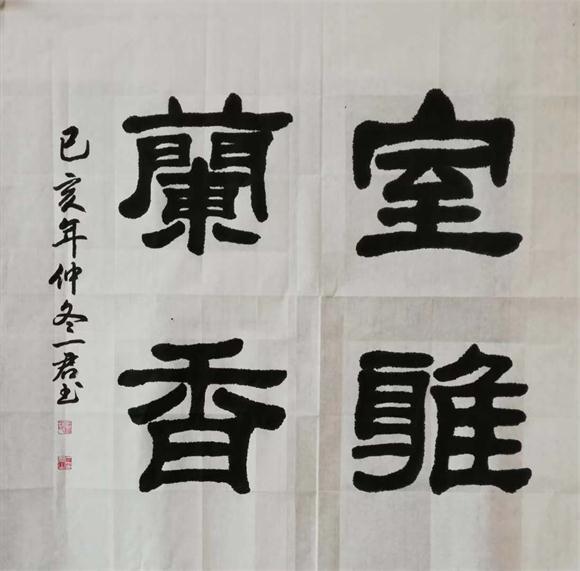 室雅
蘭香
己亥年仲冬一君书